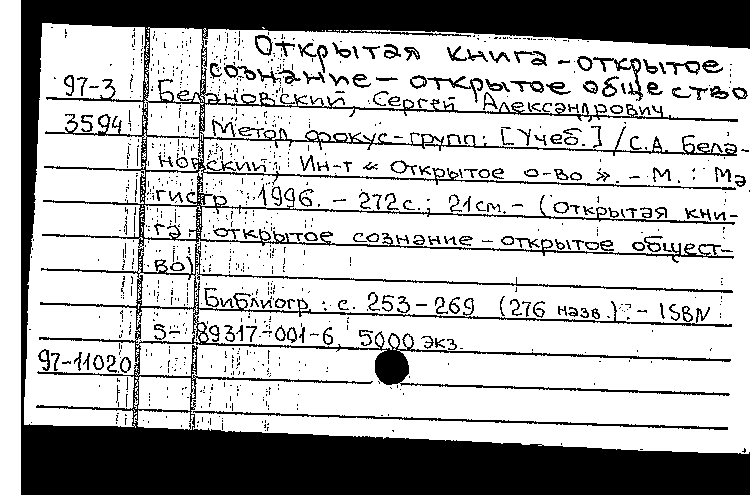 Открытая книга - открытое
сознание - открытое общество
97-3 Белановский, Сергей Александрович.
3594 Метод фокус-групп: [Учеб.] / С.А. Бела-
новский; Ин-т « Открытое о-во ». - М. : Ма
гистр, 1996. - 272 с.; 21 см. - (Открытая кни-
га - открытое сознание - открытое общест-
во)
Библиогр.: с. 253-269 (276 назв.). - ISBN
5-89317-001-6, 5000 экз.
97-11020